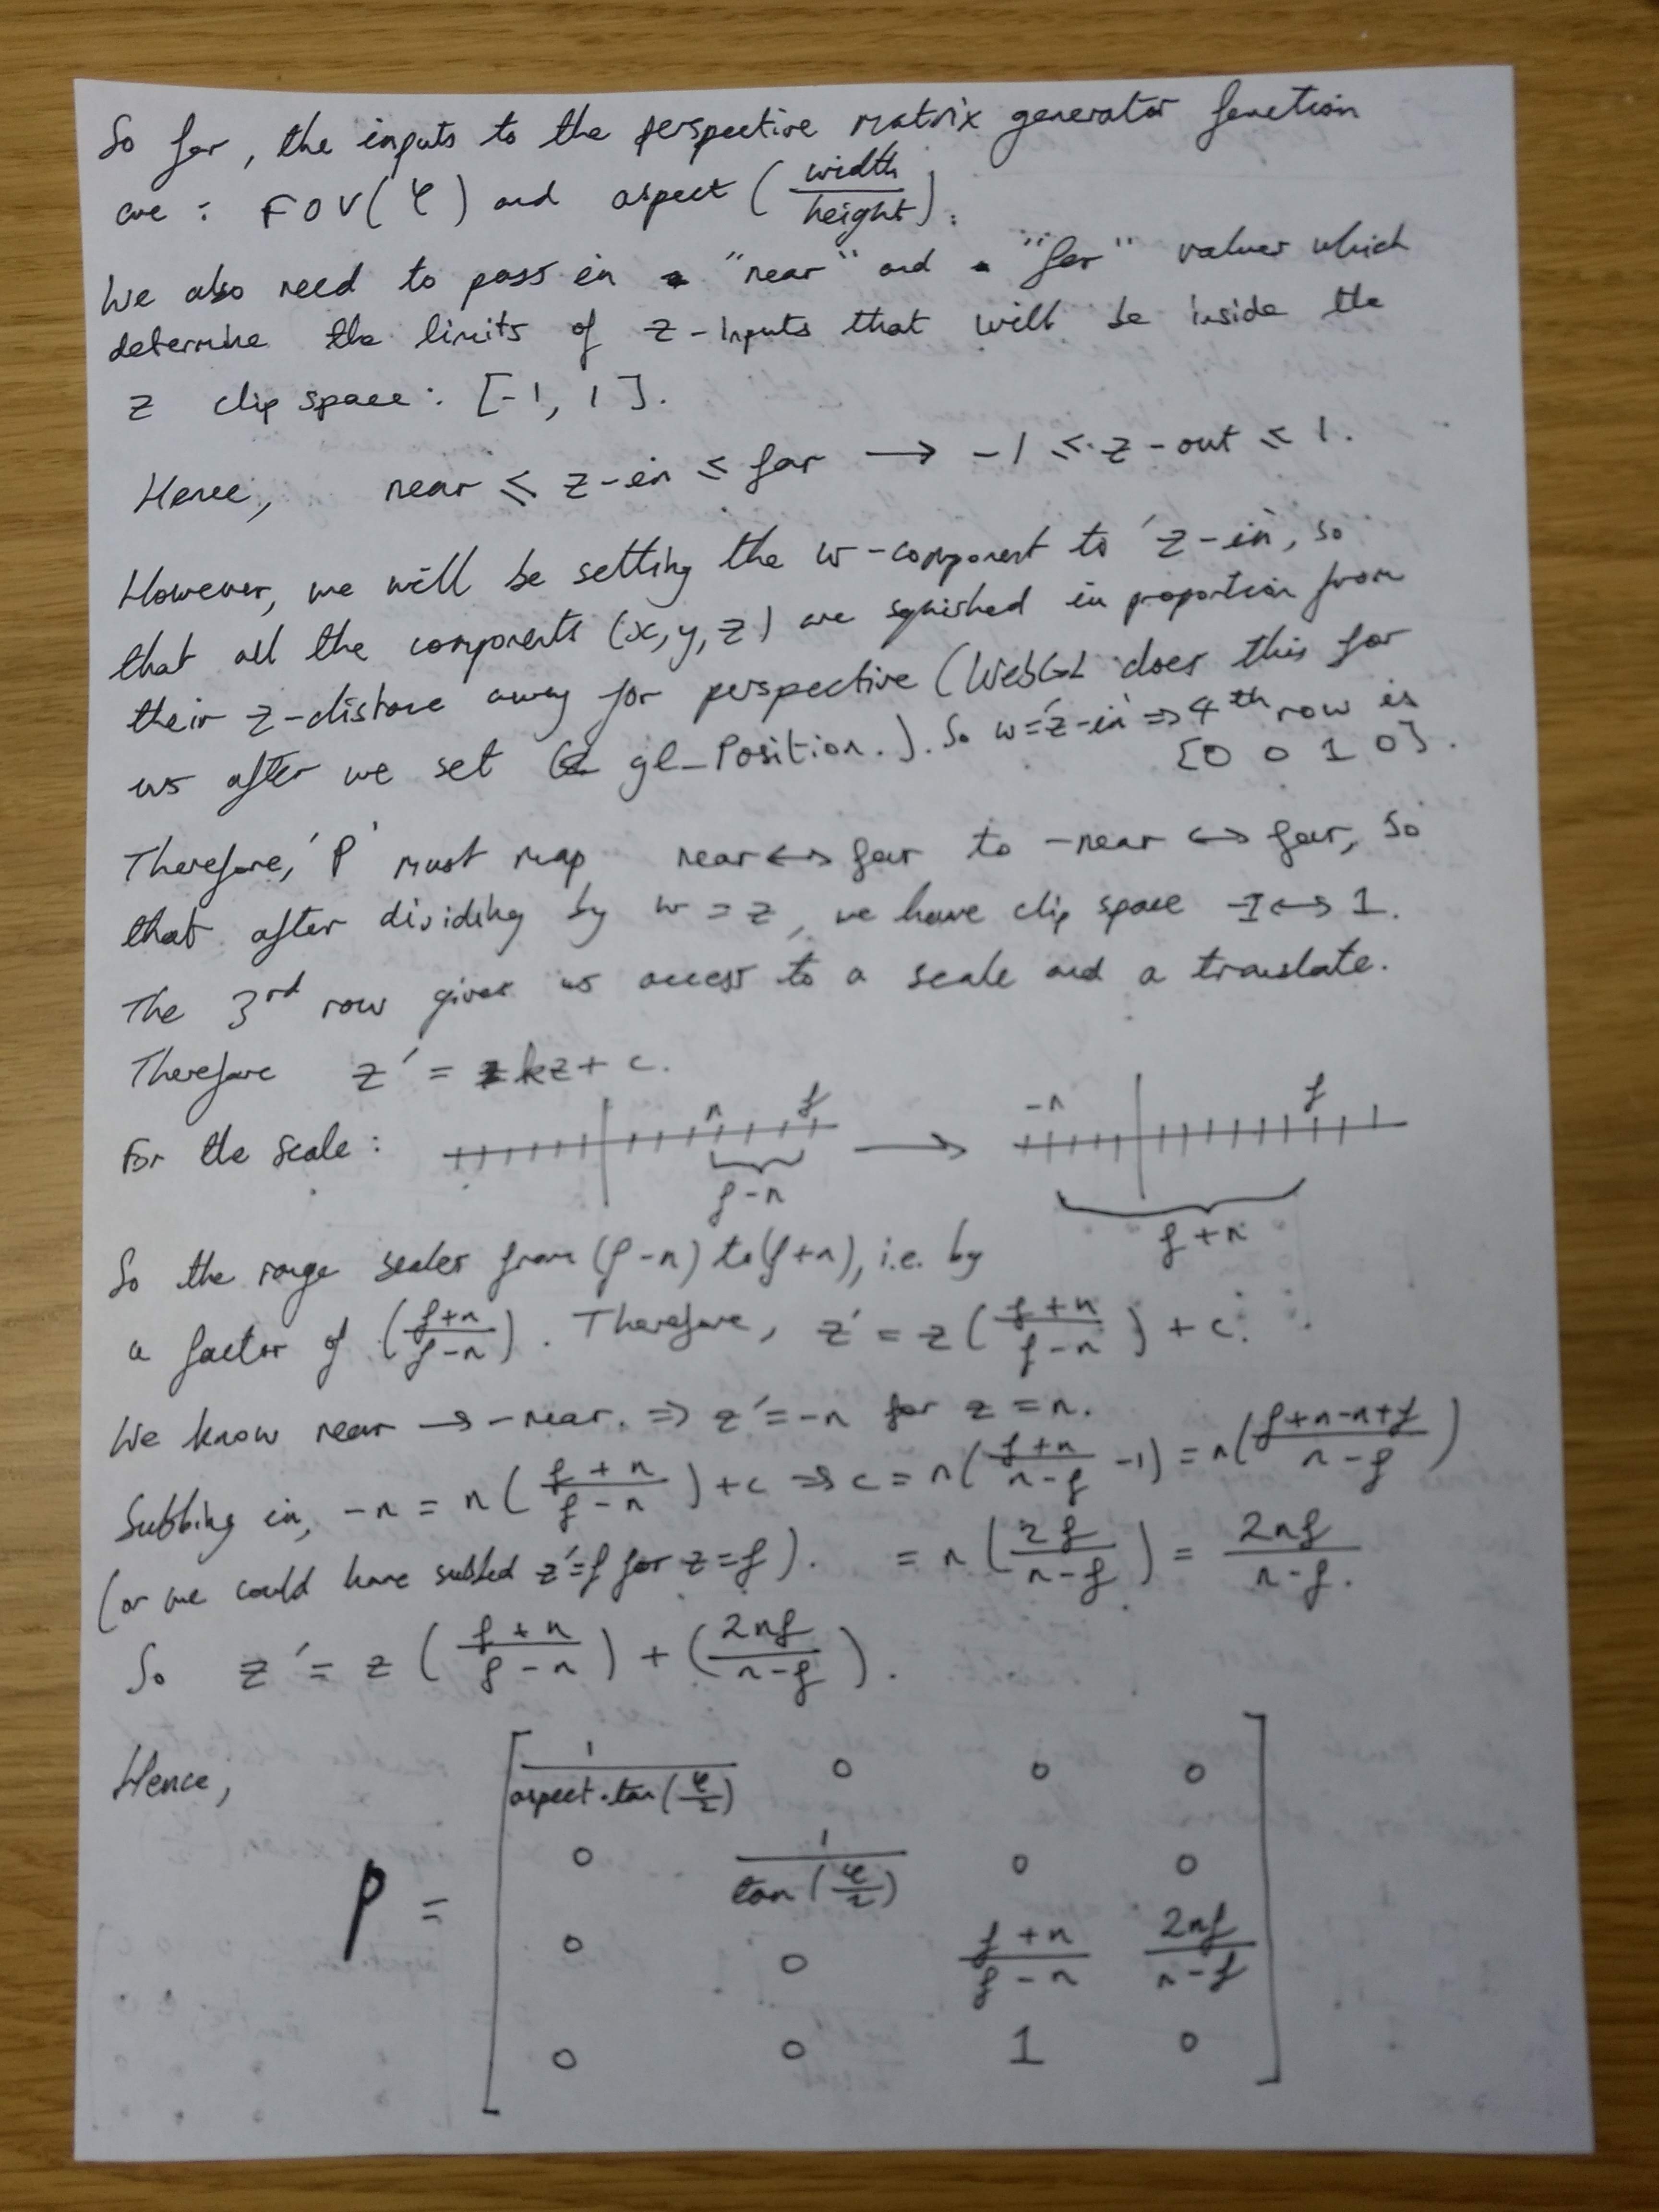 So far, the inputs to the perspective matrix generator function
are : FOV(φ) and aspect (width/height).
We also need to pass in "near" and "far" values which
determine the limits of z-inputs that will be inside the
z clip space: [-1, 1].
Hence, near ≤ z-in ≤ far → -1 ≤ z-out ≤ 1.
However, we will be setting the w-component to 'z-in', so
that all the components (x,y,z) are squished in proportion from
their z-distance away for perspective (WebGL does this for
us after we set gl_Position.). So w='z-in' => 4th row is
[0 0 1 0].
Therefore, 'P' must map near ↔ far to -near ↔ far, so
that after dividing by w = z, we have clip space -1 ↔ 1.
The 3rd row gives us access to a scale and a translate.
Therefore z' = kz + c.
For the scale : n f → -n f
f-n f+n
So the range scales from (f-n) to (f+n), i.e. by
a factor of (f+n / f-n). Therefore, z' = z (f+n / f-n) + c.
We know near → -near. => z' = -n for z = n.
Subbing in, -n = n (f+n / f-n) + c => c = n(f+n / n-f - 1) = n(f+n-n+f / n-f)
(or we could have subbed z'=f for z=f). = n (2f / n-f) = 2nf / n-f.
So z' = z (f+n / f-n) + (2nf / n-f).
Hence,
P =
[ 1 / aspect·tan(φ/2) 0 0 0
0 1 / tan(φ/2) 0 0
0 0 f+n / f-n 2nf / n-f
0 0 1 0 ]